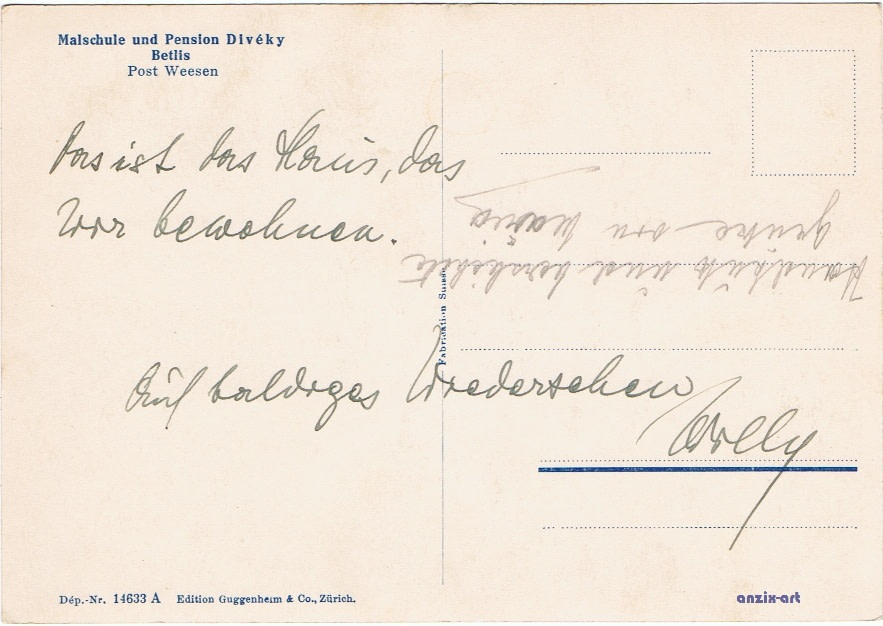 Malschule und Pension Divéky
Betlis
Post Weesen
Das ist das Haus, das
wir bewohnen.
Auf baldiges Wiedersehen
Willy
Handkuß und herzlichste
Grüße von Maria
Fabrication Suisse
Dép.-Nr. 14633 A Edition Guggenheim & Co., Zürich.
anzix-art